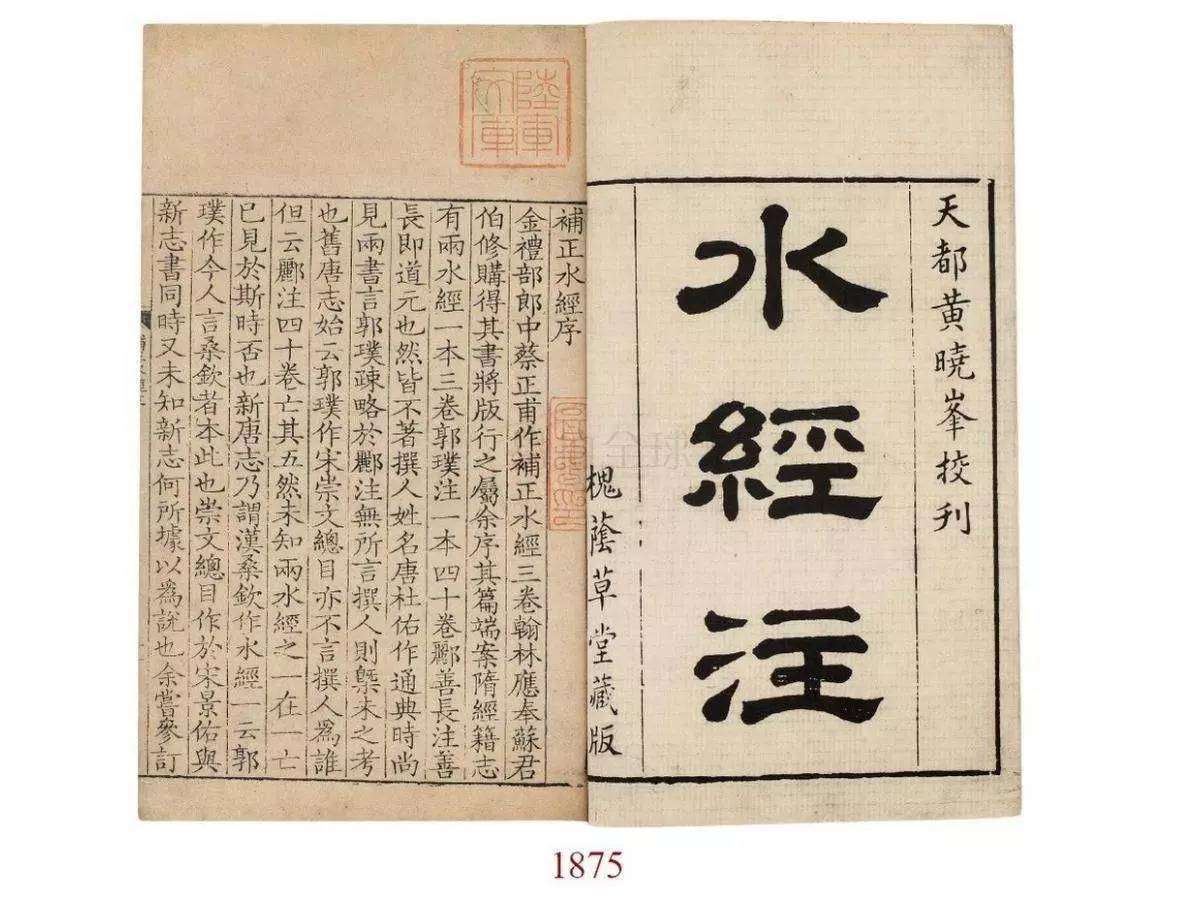 天都黄曉峯挍刊
水經注
槐蔭草堂藏版
陸軍文庫
補正水經序
金禮部郎中蔡正甫作補正水經三卷翰林應奉蘇君
伯修購得其書將版行之屬余序其篇端案隋經籍志
有兩水經一本三卷郭璞注一本四十卷酈善長注善
長即道元也然皆不著撰人姓名唐杜佑作通典時尚
見兩書言郭璞疎略於酈注無所言撰人則槩未之考
也舊唐志始云郭璞作宋崇文總目亦不言撰人爲誰
但云酈注四十卷亡其五然未知兩水經之一在一亡
已見於斯時否也新唐志乃謂漢桑欽作水經一云郭
璞作今人言桑欽者本此也崇文總目作於宋景佑與
新志書同時又未知新志何所據以爲說也余嘗參訂
1875